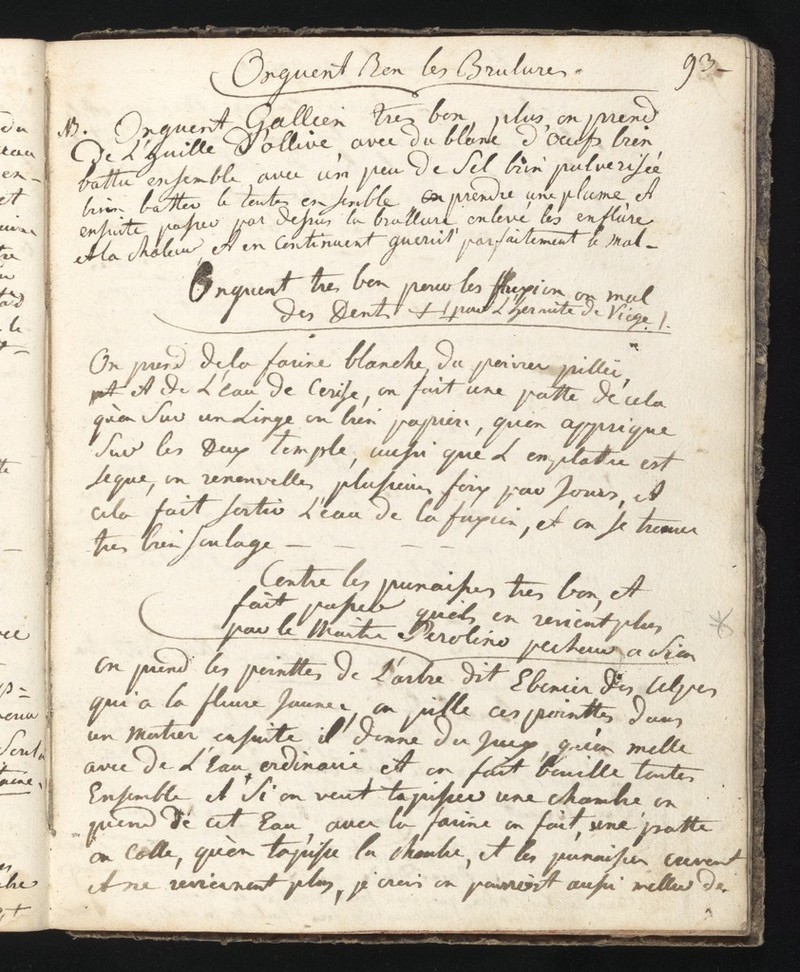 Onguent Bon les Brulures.
93
NB. Onguent Gallien tres bon, plus, on prend
De L'huille D'ollive avec du blanc d'oeufs bien
battu ensemble avec un peu de Sel bien pulverisée
bien batter le toutes ensemble on prendre une plume et
ensuite passer par dessus la brullure enleve les enflure
et la chaleur et en Continuent guerist parfaitement le mal
Onguent tres bon pour les fluxion ou mal
des Dents + par L'hermite de Viege.
On prend dela farine blanche, du poivre pillée,
et de L'Eau de Cerise, on fait une patte de cela
qu'on Sur un Linge ou bien papier, qu'on applique
Sur les Deux temple, aussi que L'emplatre est
seque, on renouvelles plusieurs foix par Jours, et
cela fait sortir L'eau de la fuxion, et on se trouve
tres bien soulage
Contre les punaises tres bon et
fait passer quils en revient plus
par le Maitre Perolino pecheur a Sion
on prend les pointtes de L'arbre dit Ebenier des Alpes
qui a la fleure Jaunes, on pille ces pointtes dans
un mortier ensuite il donne du Jux, qu'on melle
avec de L'Eau ordinaire et on fait bouille toutes
Ensemble et Si on veut tapisser une chambre on
prend de cet Eau, avec la farine on fait, une patte
ou Colle, qu'on tapisse la chambre, et les punaises crevent
et ne reviennent plus, je crois on pourroit aussi meller de